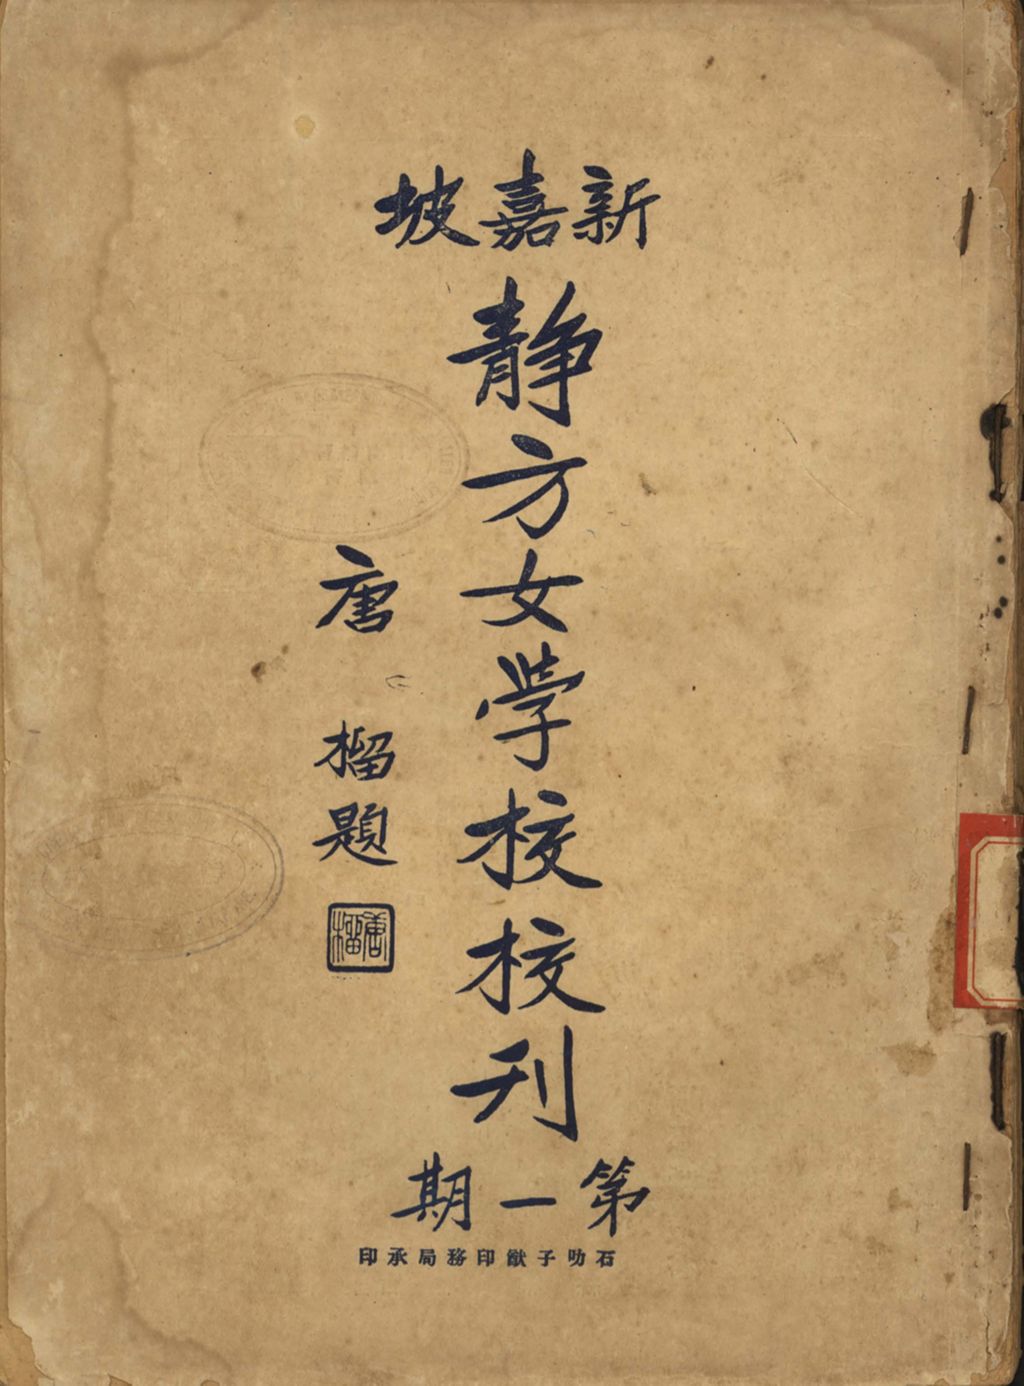 新嘉坡
静方女学校校刊
第一期
唐榴題
唐榴
石叻子猷印務局承印